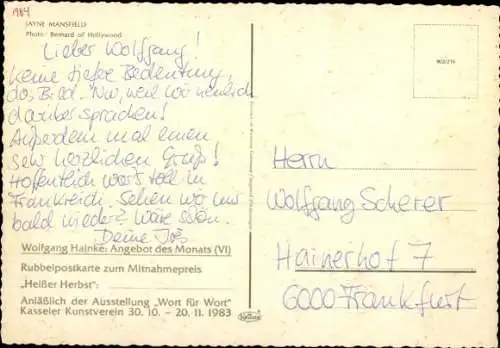 1984
JAYNE MANSFIELD
Photo: Bernard of Hollywood
Lieber Wolfgang!
Keine tiefere Bedeutung,
das Bild. Nur, weil wir neulich
darüber sprachen!
Außerdem mal einen
sehr herzlichen Gruß!
Hoffentlich war's toll in
Frankreich. Sehen wir uns
bald wieder? Wäre schön.
Deine
Wolfgang Hainke: Angebot des Monats (VI)
Rubbelpostkarte zum Mitnahmepreis
„Heißer Herbst":
Anläßlich der Ausstellung „Wort für Wort"
Kasseler Kunstverein 30. 10. – 20. 11. 1983
902/214
Herrn
Wolfgang Scherer
Hainerhof 7
6000 Frankfurt